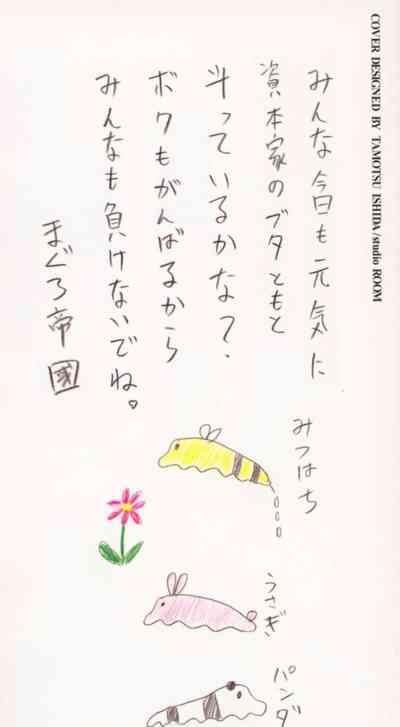 COVER DESIGNED BY TAMOTSU ISHIDA/studio ROOM
みんな今日も元気に
資本家のブタともと
斗っているかな?.
ボクもがんばるから
みんなも負けないでね。
まぐろ帝國
みつはち
うさぎ
パンダ